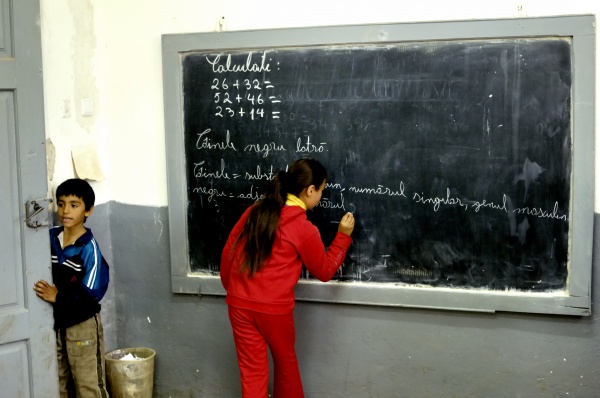 Calculați:
26+32=
52+46=
23+14=
Câinele negru latră.
Câinele = subst numărul singular, genul masculin.
negru = adj